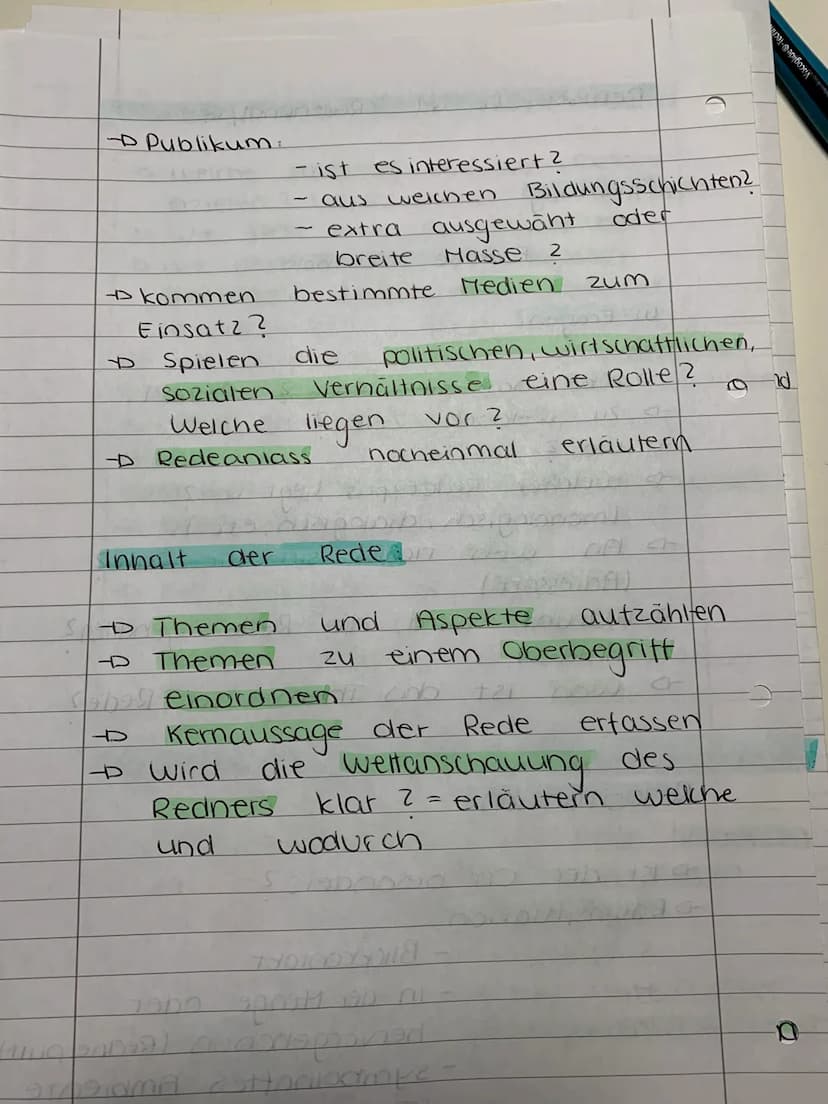 → Publikum:
- ist es interessiert?
- aus welchen Bildungsschichten?
- extra ausgewäht oder
breite Masse?
→ kommen bestimmte Medien zum
Einsatz?
→ Spielen die politischen, wirtschaftlichen,
sozialen Verhältnisse eine Rolle?
Welche liegen vor?
→ Redeanlass nocheinmal erläutern
Inhalt der Rede:
→ Themen und Aspekte aufzählen
→ Themen zu einem Oberbegriff
einordnen
→ Kernaussage der Rede erfassen
→ Wird die Weltanschauung des
Redners klar? = erläutern welche
und wodurch